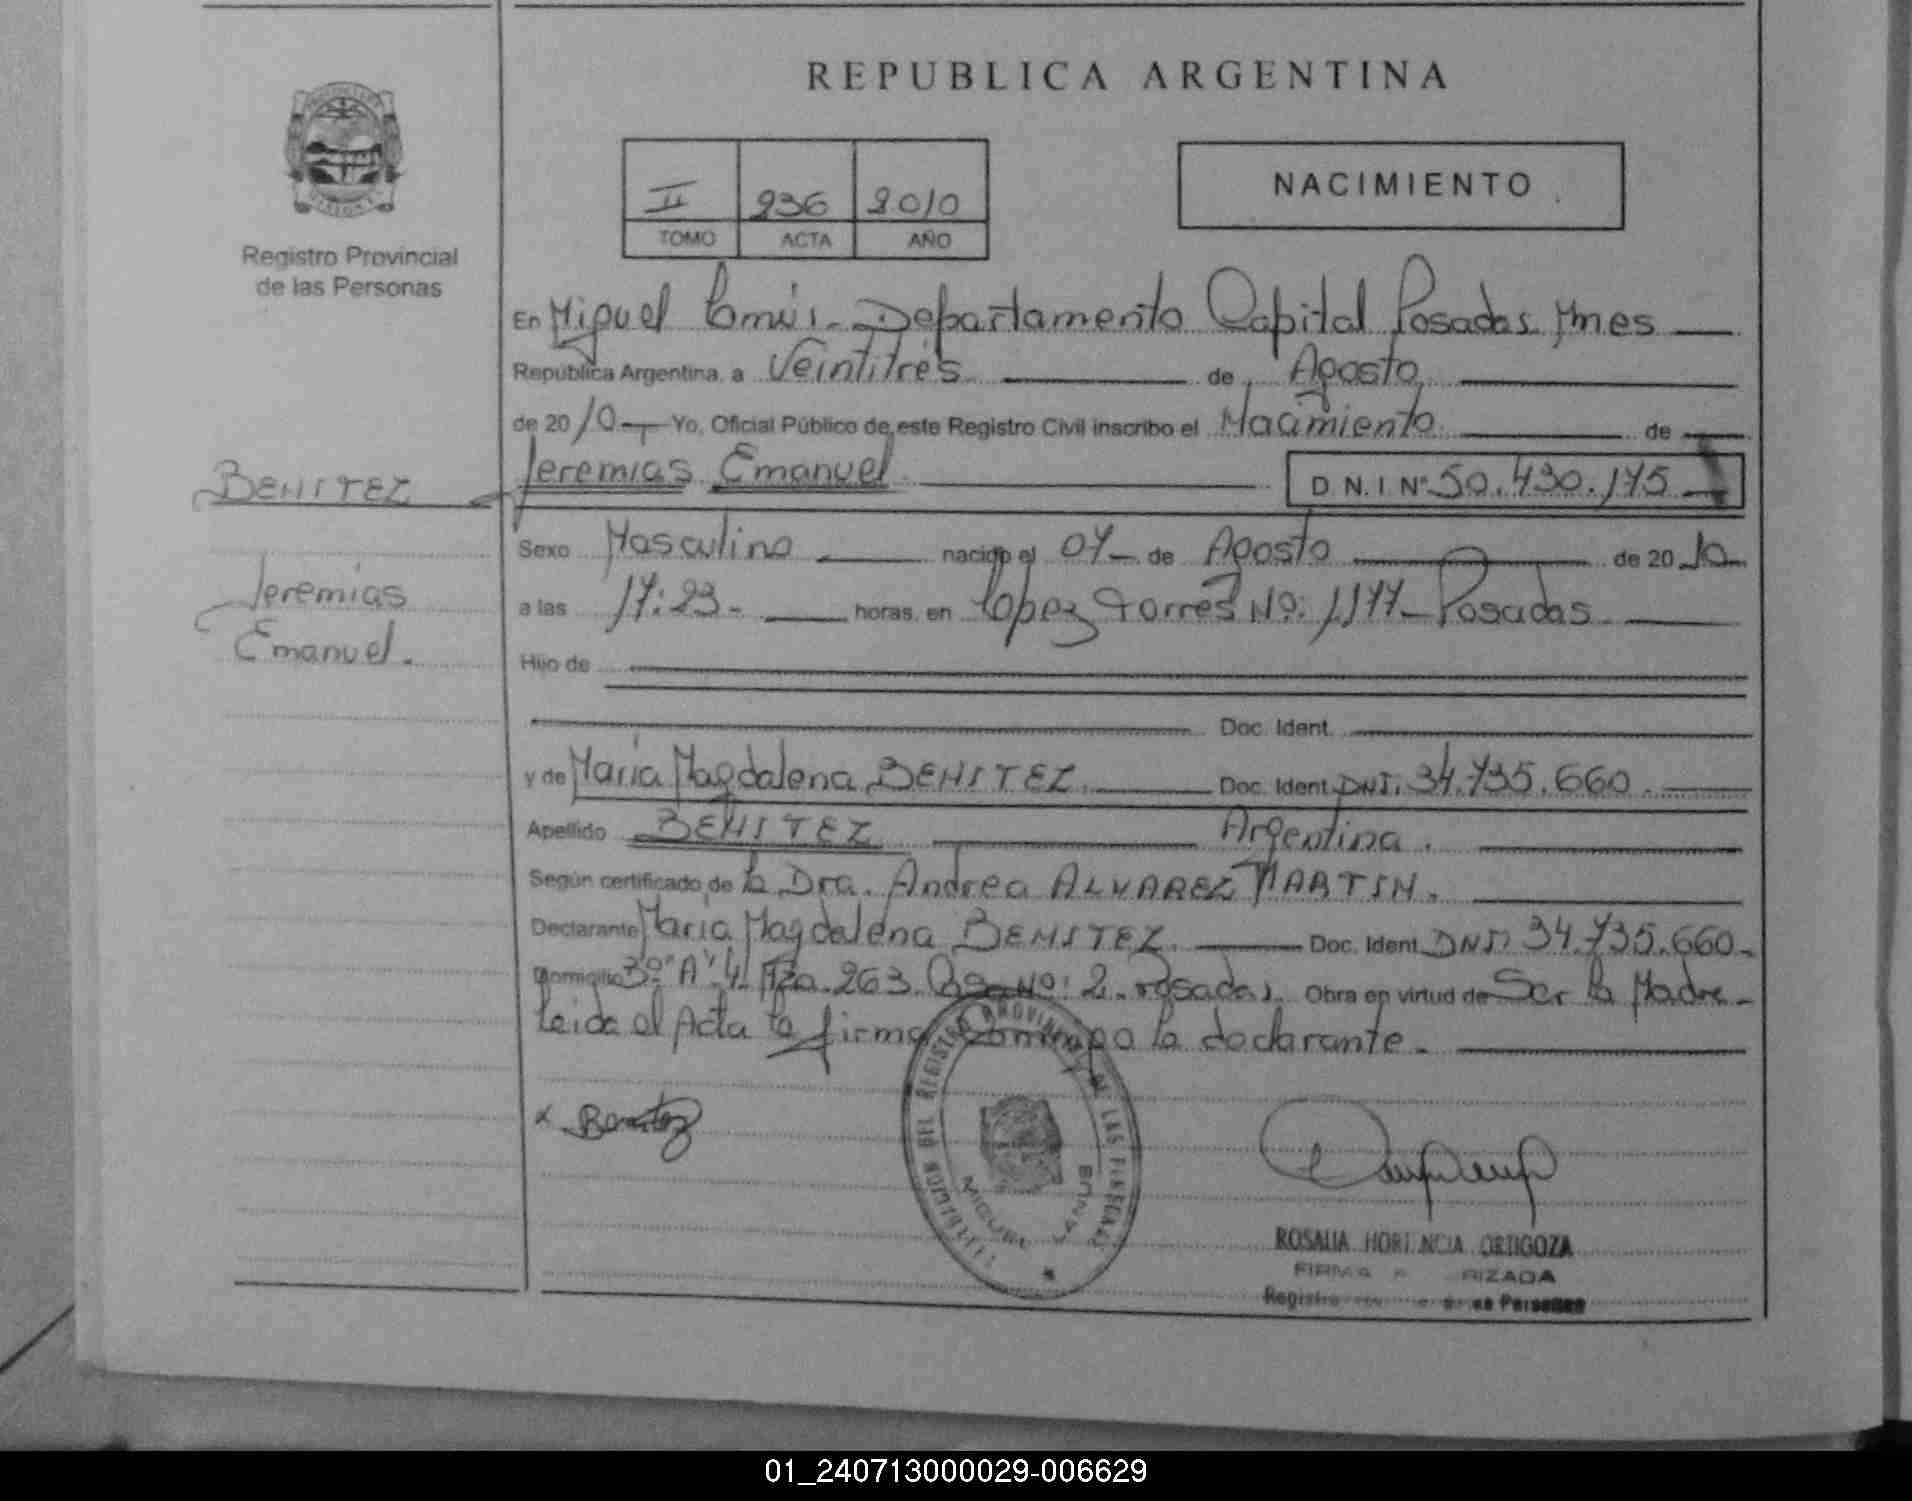 REPUBLICA ARGENTINA
Registro Provincial
de las Personas
II 236 2010
TOMO ACTA AÑO
NACIMIENTO
En Miguel Lanús - Departamento Capital Posadas Mnes
República Argentina, a Veintitrés de Agosto
de 2010 Yo, Oficial Público de este Registro Civil inscribo el Nacimiento de
Jeremias Emanuel D.N.I. Nº 50.430.175
BENITEZ
Jeremias
Emanuel.
Sexo Masculino nacido el 07 de Agosto de 2010
a las 17:23 - horas, en Lopez Torres Nº: 1177 - Posadas
Hijo de
Doc. Ident.
y de Maria Magdalena BENITEZ Doc. Ident. DNI. 34.735.660.
Apellido BENITEZ Argentina.
Según certificado de la Dra. Andrea ALVAREZ MARTIN.
Declarante Maria Magdalena BENITEZ. Doc. Ident. DNI. 34.735.660-
Domicilio 3º "A" 4 Mza. 263. Casa Nº: 2. Posadas. Obra en virtud de Ser la Madre -
Leida el Acta la firma conmigo la declarante -
x Benitez
DEL REGISTRO PROVINCIAL DE LAS PERSONAS
MIGUEL LANUS
ROSALIA HORTENCIA ORTIGOZA
FIRMA
01_240713000029-006629